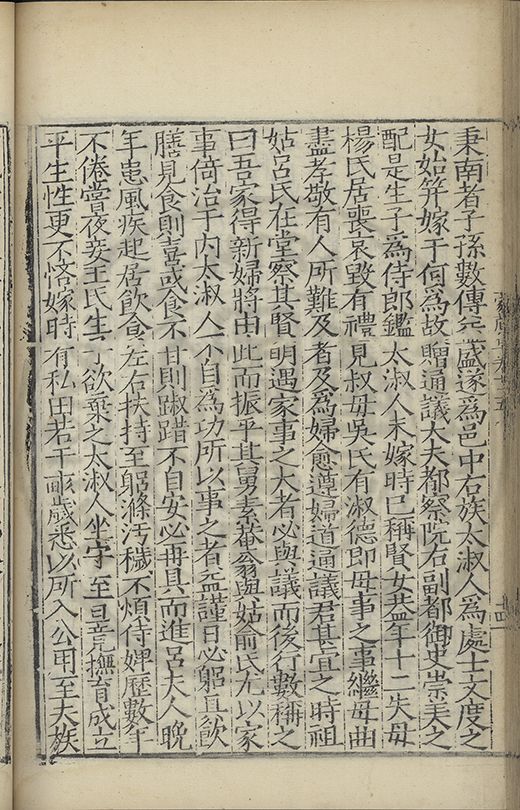 秉南者子孫數傳益盛遂爲邑中右族太淑人爲處士文度之
女始笄嫁于何爲故贈通議大夫都察院右副都御史崇美之
配是生子爲侍郎鑑太淑人未嫁時已稱賢女葢年十二失母
楊氏居喪哀毀有禮見叔母吳氏有淑德即母事之事繼母曲
盡孝敬有人所難及者及爲婦愈遵婦道通議君甚宜之時祖
姑呂氏在堂察其賢明遇家事之大者必與議而後行數稱之
曰吾家得新婦將由此而振乎其舅素菴翁與姑俞氏尤以家
事倚治于内太淑人不自爲功所以事之者益謹日必躬具飲
膳見食則喜或食不甘則踧踖不自安必再具而進呂夫人晚
年患風疾起居飲食左右扶持至躬滌汚穢不煩侍婢歷數年
不倦嘗夜妾王氏生子欲棄之太淑人坐守至旦竟撫育成立
平生性更不悋嫁時有私田若干畝歲悉以所入公用至夫族